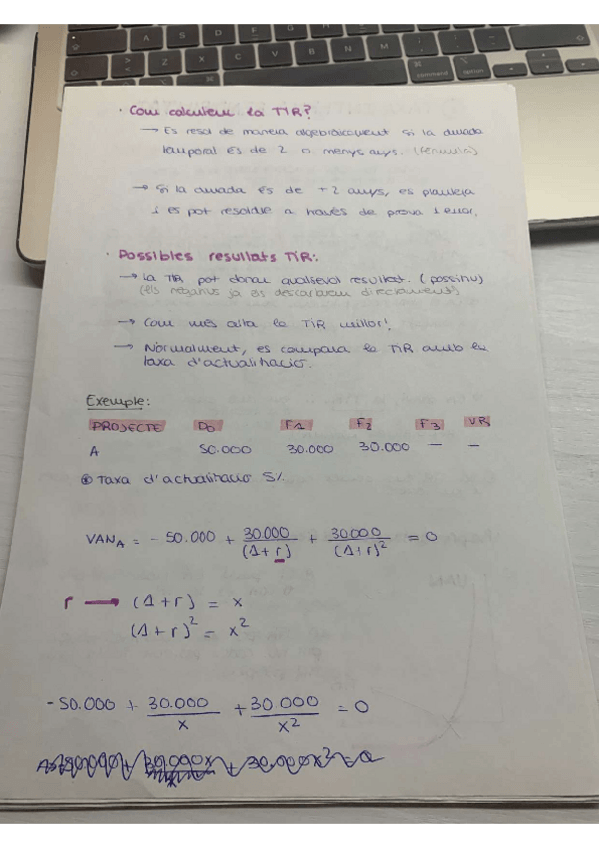 A S D F G H J K L
Z X C V B N M
command option
· Com calculem la TIR?
→ Es resol de manera algebràicament si la durada
temporal és de 2 o menys anys. (fórmula)
→ Si la durada és de +2 anys, es planteja
i es pot resoldre a través de prova i error.
· Possibles resultats TIR:
→ La TIR pot donar qualsevol resultat. (positiu)
(els negatius ja es descartaran directament)
→ Com més alta la TIR millor!
→ Normalment, es compara la TIR amb la
taxa d'actualització.
Exemple:
PROJECTE D0 F1 F2 F3 VR
A 50.000 30.000 30.000 — —
Taxa d'actualització 5%
VAN_A = - 50.000 + 30.000/(1+r) + 30.000/(1+r)² = 0
r → (1+r) = x
(1+r)² = x²
- 50.000 + 30.000/x + 30.000/x² = 0